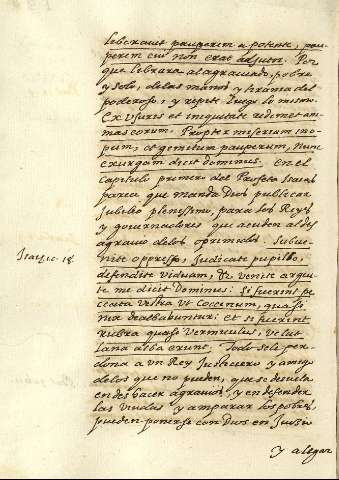 liberavit pauperem a potente, pau-
perem cui non erat adjutor. Por
que librara al agraviado, pobre
y solo, de las manos y tirania del
poderoso, y repite luego lo mismo.
Ex usuris et iniquitate redemet ani-
mas eorum. Propter miseriam ino-
pum, et gemitum pauperum, Nunc
exurgam dicit dominus. En el
Capitulo primero del Profeta Isaias
parece que manda Dios publicar
Jubileo plenissimo, para los Reyes
y governadores que acuden al des
agravio de los oprimidos. Subve-
Isai. 1. 18. nite oppresso, Judicate pupillo,
defendite viduam, Et venite argui-
te me dicit Dominus: Si fuerint pe-
ccata vestra ut Coccinum, quasi
nix dealbabuntur: et si fuerint
rubra quasi vermiculus, velut
lana alba erunt. Todo se le per-
dona a un Rey Justiciero y amigo
de los que no pueden, que se desvela
en deshacer agravios, y en defender
las viudas y amparar los pobres,
pueden ponerse con Dios en Juizio
y alegar